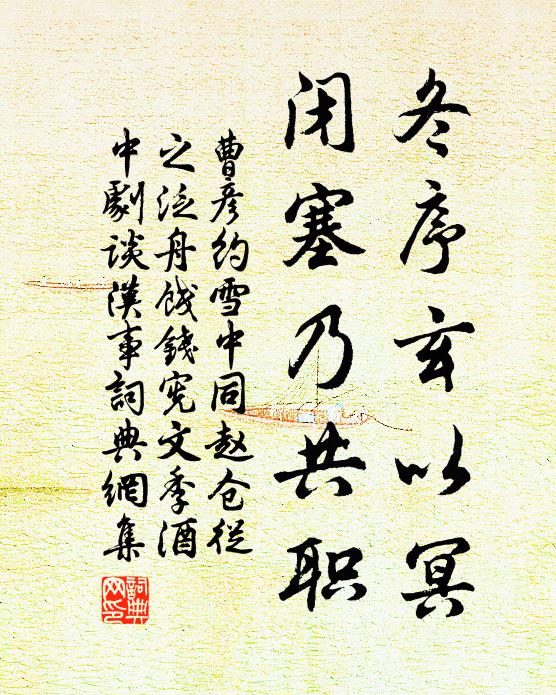 冬序玄以冥
闭塞乃共职
曹彦约雪中同赵仓从
之泛舟饯錢宪文季酒
中劇谈漢事詞典網集
詞典
网印